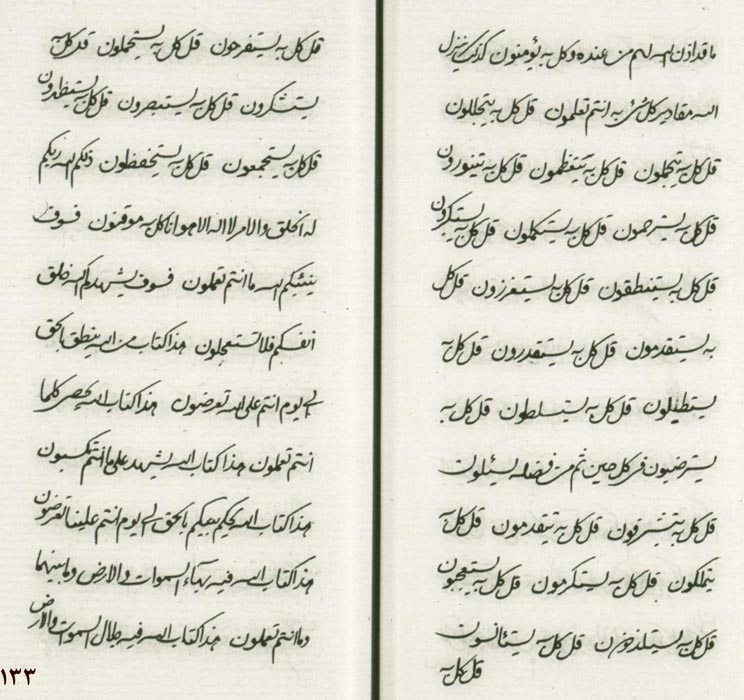 ما قد اذن الله لهم من عنده وكل به يؤمنون كذلك ينزل
الله مقادير كل شئ به انتم تعلمون قل كل به يتجللون
قل كل به يتجملون قل كل به يتعظمون قل كل به يتنورون
قل كل به يسترحمون قل كل به يستكملون قل كل به يستكبرون
قل كل به يستنطقون قل كل به يستعززون قل كل
به يستقدمون قل كل به يستقدرون قل كل به
يستطيلون قل كل به يتسلطون قل كل به
يسترضيون في كل حين ثم من فضله يسئلون
قل كل به يتشرفون قل كل به يتقدمون قل كل به
يتملكون قل كل به يستكرمون قل كل به يستعجبون
قل كل به يستلذذون قل كل به يستأنسون
قل كل به
قل كل به يستفرحون قل كل به يستجملون قل كل به
يستشكرون قل كل به يستبصرون قل كل به يستظهرون
قل كل به يستجمعون قل كل به يستحفظون ذلكم الله ربكم
له الخلق والامر لا اله الا هو انا كل به موقنون فسوف
ينبئكم الله ما انتم تعملون فسوف يشهدكم الله خلق
انفسكم فلا تستعجلون هذا كتاب من الله ينطق بالحق
الى يوم انتم على الله تعرضون هذا كتاب الله يحصى كلما
انتم تعملون هذا كتاب الله يشهد على ما انتم تكسبون
هذا كتاب الله يحكم بينكم بالحق الى يوم انتم علينا تعرضون
هذا كتاب الله فيه بهاء السموات والارض وما بينهما
وما انتم تعملون هذا كتاب الله فيه جلال السموات والارض
١٣٣